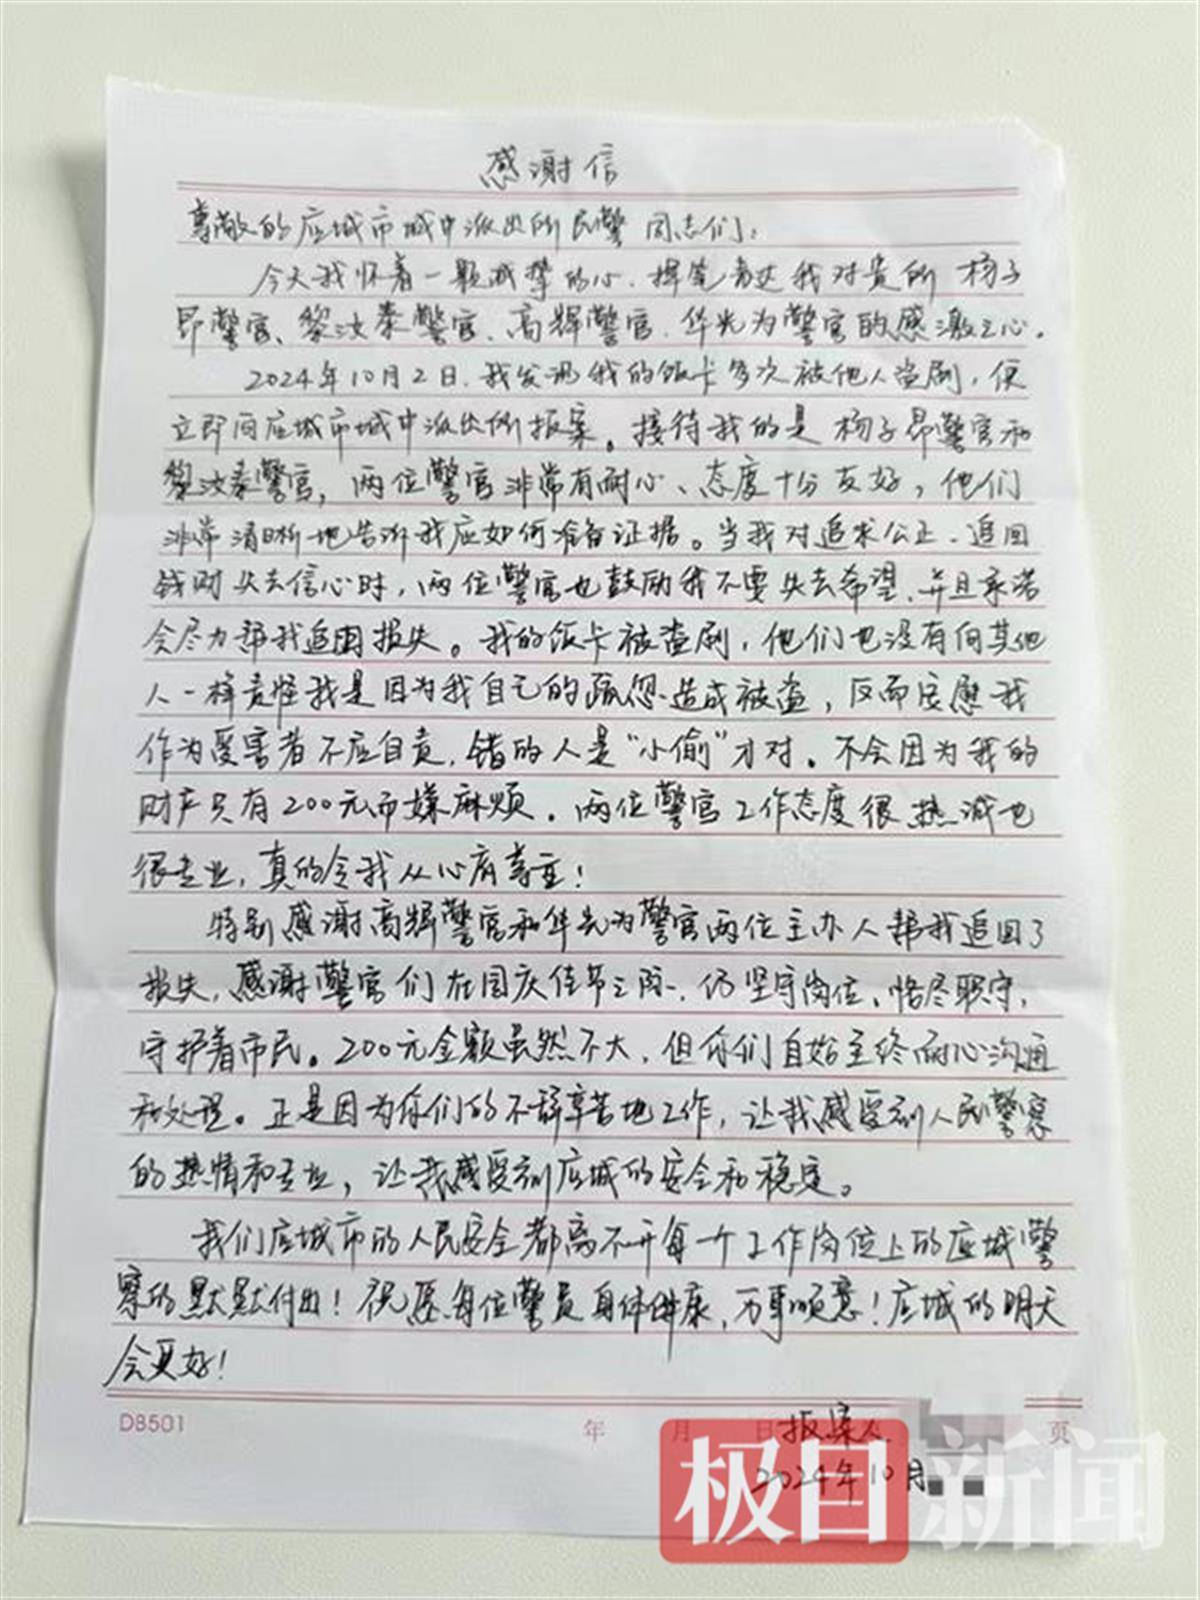 感谢信
尊敬的应城市城中派出所民警同志们:
今天我怀着一颗诚挚的心,挥笔表达我对贵所杨子
昂警官、黎汝泰警官、高辉警官、华先为警官的感激之心。
2024年10月2日,我发现我的饭卡多次被他人盗刷,便
立即向应城市城中派出所报案。接待我的是杨子昂警官和
黎汝泰警官,两位警官非常有耐心、态度十分友好,他们
非常清晰地告诉我应如何准备证据。当我对追求公正、追回
钱财失去信心时,两位警官也鼓励我不要失去希望,并且承诺
会尽力帮我追回损失。我的饭卡被盗刷,他们也没有向其他
人一样责怪我是因为我自己的疏忽造成被盗,反而安慰我
作为受害者不应自责,错的人是“小偷”才对。不会因为我的
财产只有200元而嫌麻烦。两位警官工作态度很热诚也
很专业,真的令我从心底尊重!
特别感谢高辉警官和华先为警官两位主办人帮我追回了
损失,感谢警官们在国庆佳节之际,仍坚守岗位,恪尽职守,
守护着市民。200元金额虽然不大,但你们自始至终耐心沟通
和处理。正是因为你们的不辞辛苦地工作,让我感受到人民警察
的热情和专业,让我感受到应城的安全和稳定。
我们应城市的人民安全都离不开每一个工作岗位上的应城警
察的默默付出!祝愿每位警员身体健康,万事顺意!应城的明天
会更好!
D8501 年 月 日 页
报案人
2024年10月
极目新闻